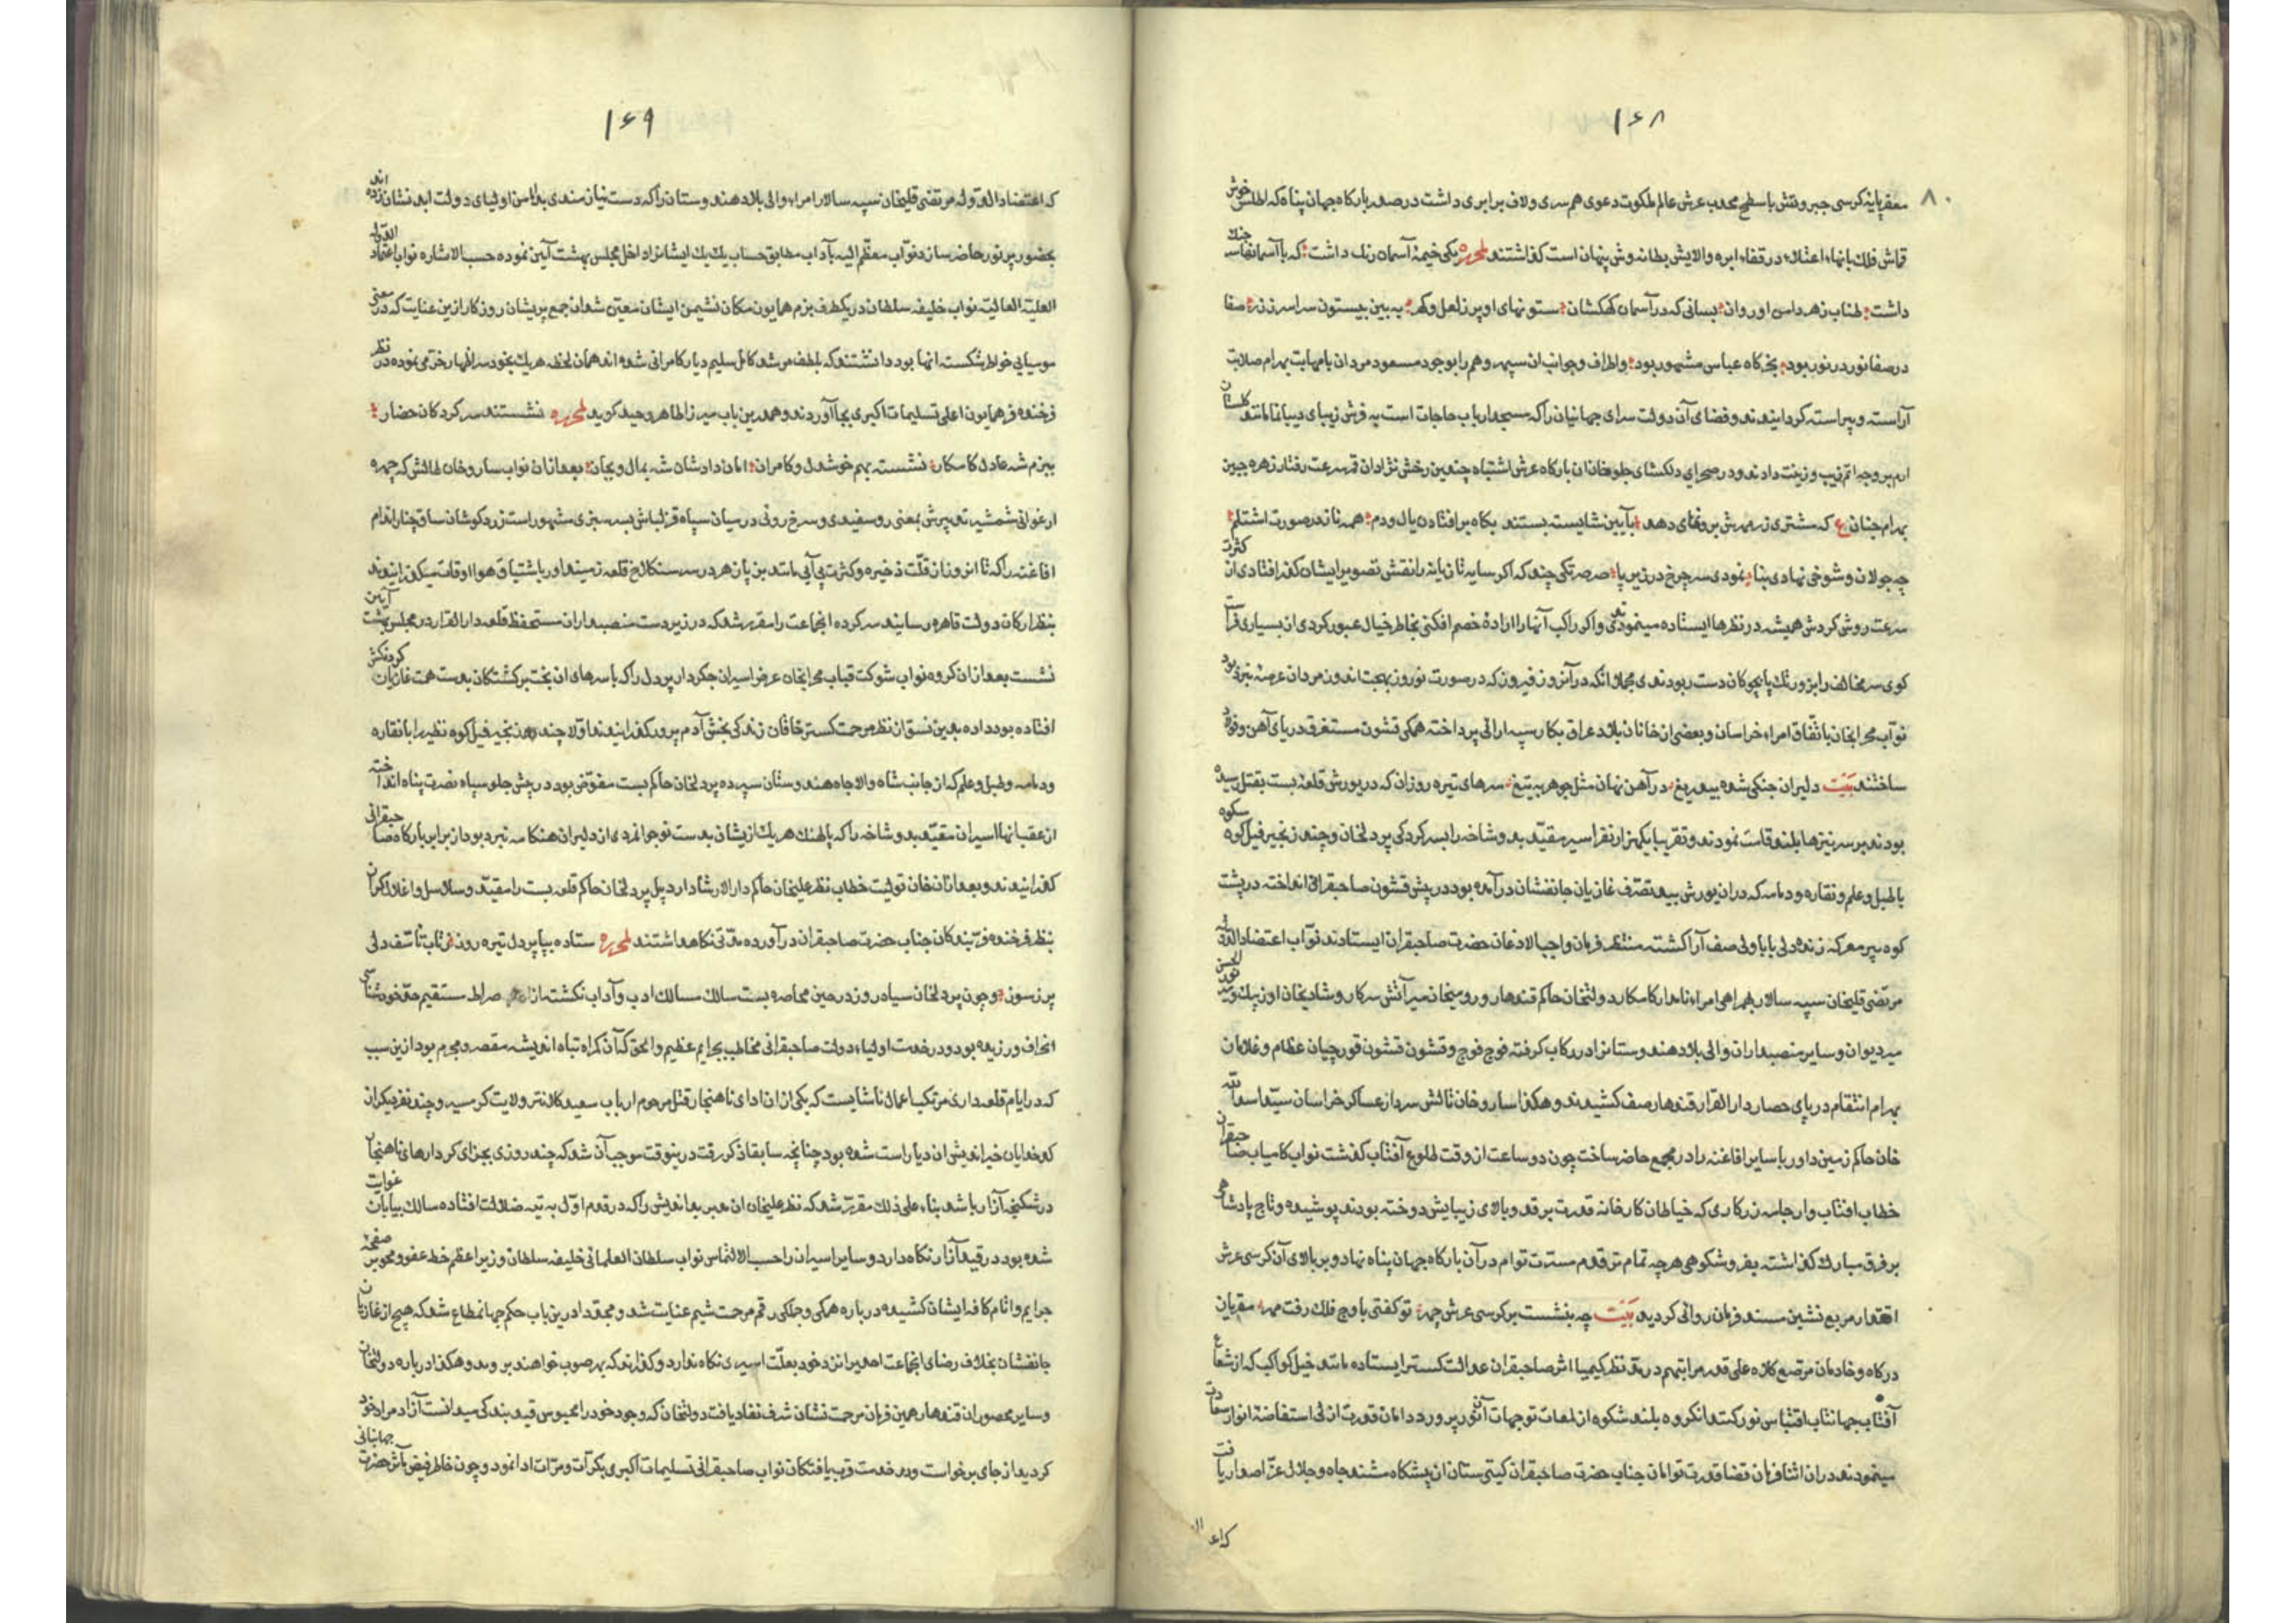 ۱۶۸
۸۰
مقر پایهٔ کرسی جبروتش با سطح محدب عرش عالم ملکوت دعوی هم سری و لاف برابری داشت در صدر بارکاه جهان پناه که اطلس خوش
قماش فلک بانهاء اعتلاء در قفاء ابره والایش بطانه وش پنهان است کذاشتند لمحرره یکی خیمهٔ آسمان رنك داشت که با آسمانها سر جنك
داشت طناب زهر دامن او روان بسانی که در آسمان کهکشان ستونهای او پر ز لعل و کهر به بین بیستون سراسر زر صفا
در صفا نور در نور بود بخرکاه عباسی مشهور بود واطراف وجوانب ان سپهر وهم را بوجود مسعود مردان بامهابت بهرام صلابت
آراسته و پیراسته کردانیدند و فضای آن دولت سرای جهانیان را که مسجد ارباب حاجات است به فرش زیبای دیبا مانند کلستان
ارم بر وجه اتم زیب و زینت دادند و در صحرای دلکشای جلوخان ان بارکاه عرش اشتباه چندین رخش نژادان قمر سرعت رفتار زهره جبین
بهرام جنان ع که مشتری ز مهرش برونمای دهد بآیین شایسته بستند بکاه بر افتادن یال و دم همه نادر صورت اشتلم
چه جولان و شوخی نهادی بنا نمودی سه چرخ در زیر پا صرصر تکی چند که اکر سایه تازیانه را نقش تصویر ایشان کذر افتادی از کثرت
سرعت روش کردش همیشه در نظرها ایستاده مینمودندی واکر راکب آنها را ارادهٔ خصم افکنی بخاطر خیال عبور کردی از بسیاری فراست
کوی سر مخالف را بزور تك پا بچوکان دست ربودندی مجملا انکه در آنروز فیروز که در صورت نوروز بهجت اندوز مردان عرصهٔ نبرد بود
نواب محرابخان باتفاق امراء خراسان و بعضی از خانان بلاد عراق بکار سپه ارائی پرداخته همکی قشون مستغرق دریای آهن و فولاد
ساختند بیت دلیران جنکی شده بیدریغ در آهن نهان مثل جوهر به تیغ سرهای تیره روزان که در یورش قلعهٔ بست بقتل رسیده
بودند بر سر نیزها بلند قامت نمودند و تقریبا یکهزار نفر اسیر مقید بدو شاخه را بسرکردکی پردلخان و چند زنجیر فیل کوه شکوه
باطبل و علم و نقاره و دمامه که دران یورش بید تصرف غازیان جانفشان در آمده بود در پیش قشون صاحبقرانی انداخته در پشت
کوه سپر معرکه زنده دلی بابا ولی صف آرا کشته منتظر فرمان واجب الاذعان حضرت صاحبقران ایستادند نواب اعتضاد الدوله
مرتضی قلیخان سپه سالار بهمراهی امراء نامدار کامکار دولتخان حاکم قندهار و روسیخان میر آتش سرکار و شادیخان اوزبك و
میر دیوان و سایر منصبداران والی بلاد هندوستانرا در رکاب کرفته فوج فوج و قشون قشون قورچیان عظام و غلامان
بهرام انتقام در پای حصار دار القرار قندهار صف کشیدند و هکذا ساروخان تالش سردار عساکر خراسان سیما سعد الله
خان حاکم زمین داور با سایر افاغنه را در مجمع حاضر ساخت چون دو ساعت از وقت طلوع آفتاب کذشت نواب کامیاب صاحبقران
خطاب افتاب وار جامه زرکاری که خیاطان کارخانه قدرت بر قد و بالای زیبایش دوخته بودند پوشیده و تاج پادشاهی
بر فرق مبارك کذاشته بفر و شکوهی هر چه تمام تر قدوم مسرت توام در آن بارکاه جهان پناه نهاد و بر بالای آن کرسی عرش
اقتدار مربع نشین مسند فرمان روائی کردید بیت چه بنشست بر کرسی عرش چهر تو کفتی باوج فلك رفت مهر مقربان
درکاه و خادمان مرصع کلاه علی قدر مراتبهم در مد نظر کیمیا اثر صاحبقران عدالت کستر ایستاده مانند خیل کواکب که از شعاع
آفتاب جهانتاب اقتباس نور کنند انکروه بلند شکوه از لمعات توجهات آنور پرورد دامان قدرت ازلی استفاضهٔ انوار سعادت
مینمودند دران اثنا فرمان قضا قدرت توامان جناب حضرت صاحبقران کیتی ستان از پیشکاه مسند جاه و جلال عز اصدار یافت
۱۶۹
که اعتضاد الدوله مرتضی قلیخان سپه سالار امراء والی بلاد هندوستان را که دست نیازمندی بدامن اولیای دولت ابد نشان زده اند
بحضور پر نور حاضر سازد نواب معظم الیه بآداب مطابق حساب یك یك ایشانرا داخل مجلس بهشت آیین نموده حسب الاشاره نواب اعتماد الدوله
العلیة العالیة نواب خلیفه سلطان در یکطرف بزم همایون مکان نشیمن ایشان معین شد ان جمع پریشان روزکار ازین عنایت که در معنی
مومیایی خواطر شکسته انها بود دانستند که بلطف مرشد کامل سلیم دیار کامرانی شده اند همان لحظه هر یك بخود سر اظهار خرمی نموده در نظر
فرخنده فر همایون اعلی تسلیمات اکبری بجا آوردند و همدرین باب میرزا طاهر وحید کوید لمحرره نشستند سرکردکان حضار
ببزم شه عادل کامکار نشسته بهم خوشدل و کامران امان دادشان شه بمال و بجان بعد ازان نواب ساروخان طالش که چهره
ارغوانی شمشیر تدبیرش بمعنی رو سفیدی و سرخ روئی در میان سپاه قزلباش بسر سبزی مشهور است زرد کوشان ساق چنار اندام
افاغنه را که تا انروز از قلت ذخیره و کثرت بی آبی مانند بن پاز هر در سر سنکلاخ قلعه زمیندار باشتیاق هوا اوقات میکذرانیدند
بنظر ارکان دولت قاهره رسانید سرکرده انجماعت را مقرر شد که در زیردست منصبداران مستحفظ قلعه دار القرار در مجلس بهشت آیین
نشست بعد ازان کروه نواب شوکت قباب محرابخان عرض اسیران جکردار پر دل را که با سرهای ان بخت برکشتکان بدست همت غازیان کردنکش
افتاده بود داده بدین نسق از نظر مرحمت کستر خاقان زندکی بخش آدم پرور کذرانیدند اولا چند زنجیر فیل کوه نظیر را با نقاره
و دمامه و طبل و علم که از جانب شاه والاجاه هندوستان سپرده پردلخان حاکم بست مفوض بود در پیش جلو سپاه نصرت پناه انداخته
از عقب انها اسیران مقید بدو شاخه را که پالهنك هر یك از ایشان بدست نوجوانمردی از دلیران هنکامه نبرد بود از برابر بارکاه صاحبقرانی
کذرانیدند و بعد ازان خان تولیت خطاب نظر علیخان حاکم دار الارشاد اردبیل پردلخان حاکم قلعه بست را مقید و سلاسل و اغلال کران
بنظر فرخنده فر بندکان جناب حضرت صاحبقران در آورده مدتی نکاهداشتند لمحرره ستاده بپا پر دل تیره روز ز تاب تاسف دلی
پر ز سوز و چون پردلخان سیاه روز در حین محاصره بست سالك مسالك ادب و آداب نکشته از صراط مستقیم حقوق شناسی
انحراف ورزیده بود و در خدمت اولیاء دولت صاحبقرانی مخاطب بجرایم عظیم و الحق کان کمراه تباه اندیشه مقصر و مجرم بود ازین سبب
که در ایام قلعه داری مرتکب اعمال ناشایست که یکی ازان ادای ناهنجار قتل مرحوم ارباب سعید کلانتر ولایت کرسیر و چند نفر دیکر از
کدخدایان خیر اندیش ان دیار است شده بود چنانچه سابقا ذکر رفت درینوقت موجب آن شد که چند روزی بجزای کردارهای ناهنجار
در شکنجه آزار باشد بناء علی ذلك مقرر شد که نظر علیخان ان مدبر بد اندیش را که در قدم اول به تیه ضلالت افتاده سالك بیابان غوایت
شده بود در قید آزار نکاه دارد و سایر اسیران را حسب الالتماس نواب سلطان العلمائی خلیفه سلطان وزیر اعظم خط عفو و محو بر صفحه
جرایم و اثام کافه ایشان کشیده در باره همکی و جملکی رقم مرحمت شیم عنایت شد و مجددا درین باب حکم جهانمطاع شد که هیچ از غازیان
جانفشان بخلاف رضای انجماعت احدیرا نزد خود بعلت اسیری نکاه ندارد و کذارند که بهر صوب خواهند بروند و هکذا در باره دولتخان
و سایر محصوران قندهار همین فرمان مرحمت نشان شرف نفاذ یافت دولتخان که وجود خود را محبوس قید بندکی میدانست آزاد مراد خود
کردید از جای برخواست و در خدمت قرب یافتکان نواب صاحبقرانی تسلیمات اکبری بکرات و مرات ادا نمود و چون خاطر فیض مآثر حضرت جهانبانی